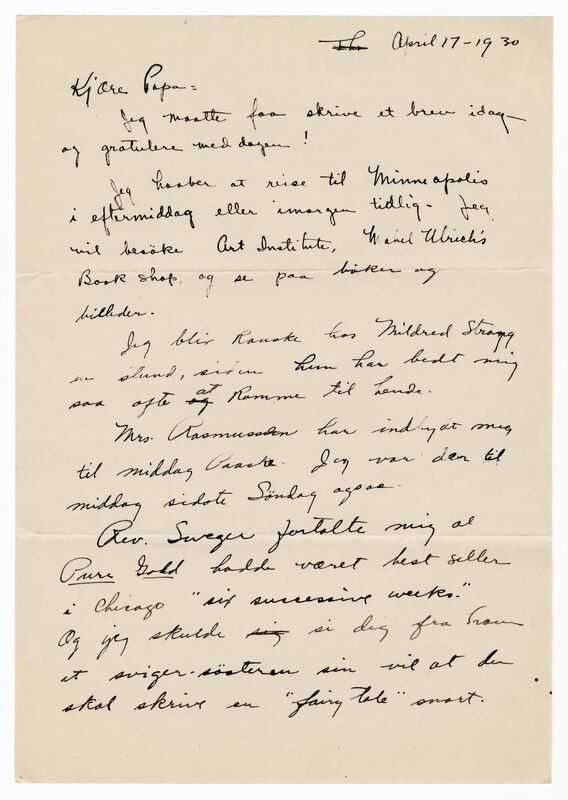 The April 17 - 1930
Kjære Papa =
Jeg maatte faa skrive et brev idag
og gratulere med dagen!
Jeg haaber at reise til Minneapolis
i eftermiddag eller imorgen tidlig - Jeg
vil besöke Art Institute, Mabel Ulrich's
Book Shop, og se paa böker og
billeder.
Jeg blir kanske hos Mildred
en stund, siden hun har bedt mig
saa ofte og at komme til hende.
Mrs. Rasmussen har indbydt mig
til middag Paaske. Jeg var der til
middag sidste Söndag ogsaa.
Rev. Sweger fortalte mig at
Pure Gold hadde været best seller
i Chicago "six successive weeks."
Og jeg skulde sig si dig fra
at sviger-sösteren sin vil at du
skal skrive en "fairy tale" snart.